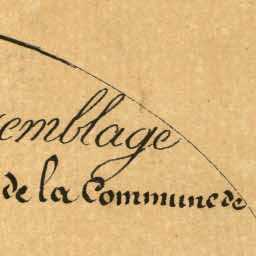 emblage
de la Commune de